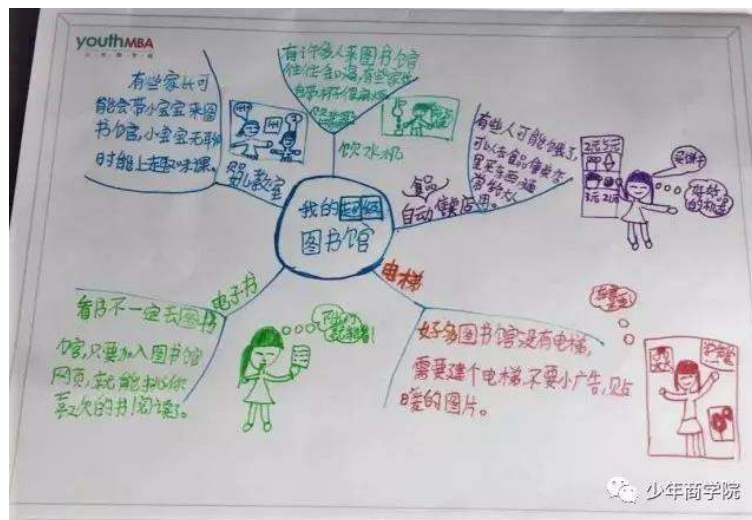 youthMBA
有些家长可
能会带小宝宝来图
书馆,小宝宝无聊
时能上趣味课。
婴儿教室
有许多人来图书馆
往往会口渴,有些家长
饮水机
有些人可能饿了,
可以去食品售卖店
里买东西
食品
自动售卖店
我的
图书馆
电子书
看书不一定去图书
馆,只要加入图书馆
网页,就能挑你
喜欢的书阅读了。
电梯
好多图书馆没有电梯,
需要建个电梯,不要小广告,贴
暖的图片。
2元 5元
3元
好好
少年商学院